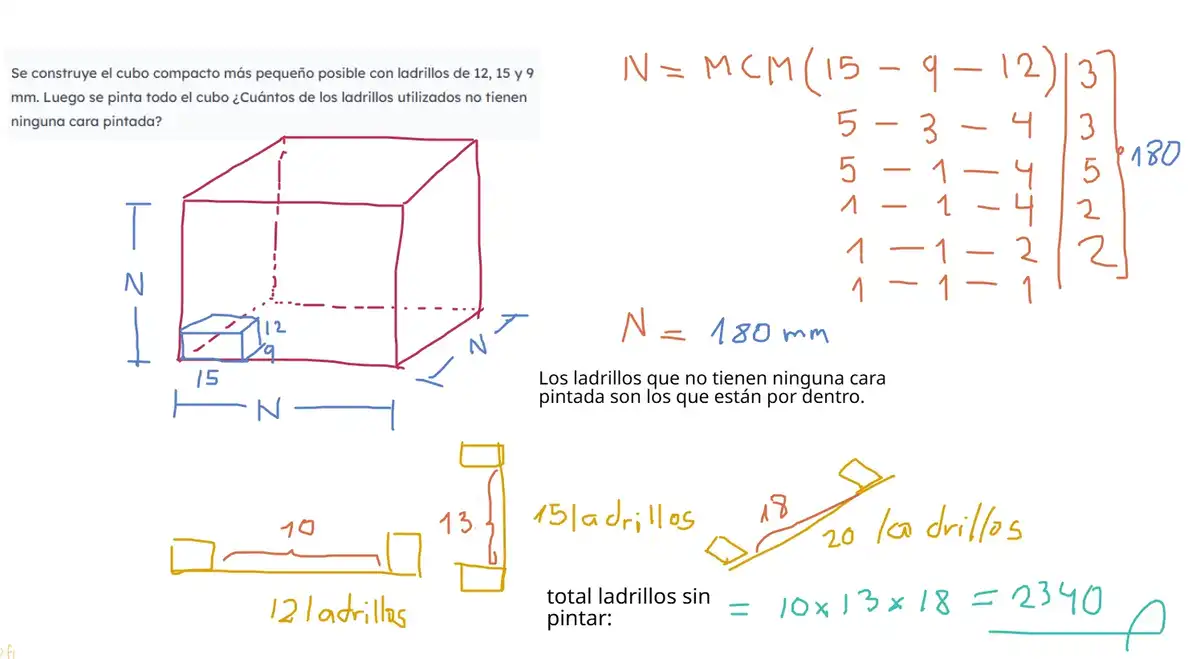 Se construye el cubo compacto más pequeño posible con ladrillos de 12, 15 y 9
mm. Luego se pinta todo el cubo ¿Cuántos de los ladrillos utilizados no tienen
ninguna cara pintada?
N = MCM (15 - 9 - 12) 3
5 - 3 - 4 3
5 - 1 - 4 5
1 - 1 - 4 2
1 - 1 - 2 2
1 - 1 - 1
180
N
12
9
15
N
N
N = 180 mm
Los ladrillos que no tienen ninguna cara
pintada son los que están por dentro.
10
12 ladrillos
13
15 ladrillos
18
20 ladrillos
total ladrillos sin
pintar:
= 10 x 13 x 18 = 2340